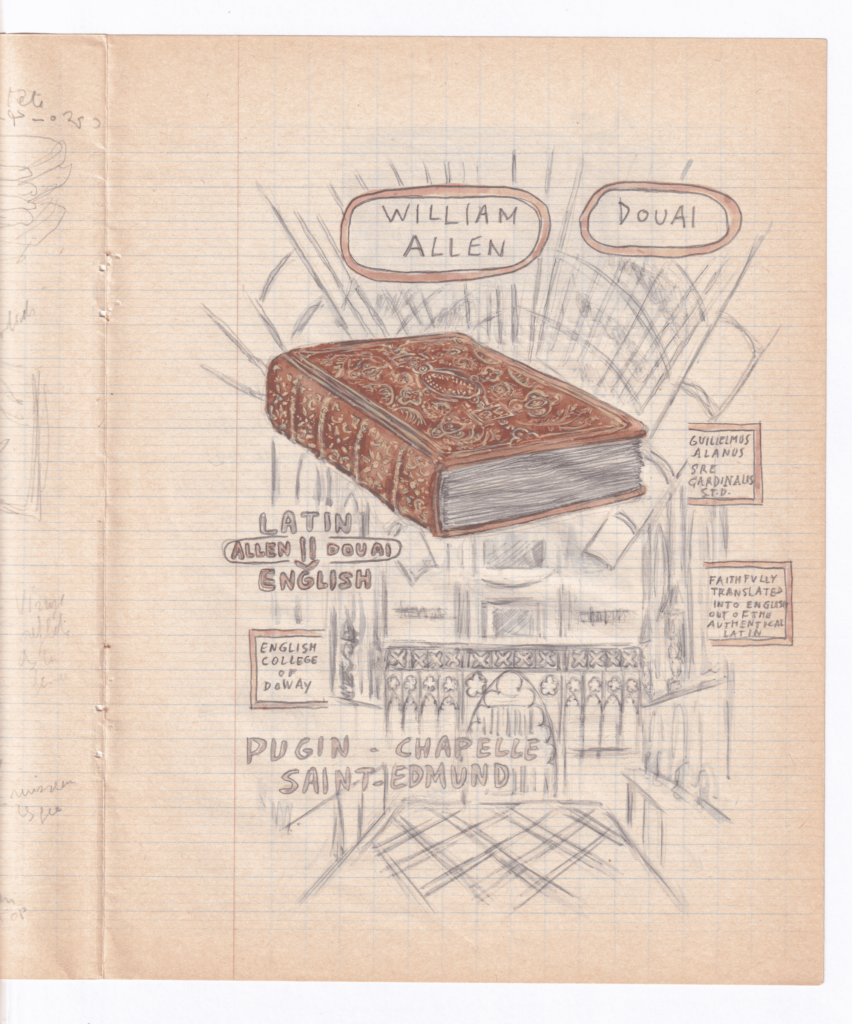 WILLIAM
ALLEN
DOUAI
GUILIELMUS
ALANUS
SRE
CARDINALIS
S.T.D.
LATIN
ALLEN DOUAI
ENGLISH
FAITHFULLY
TRANSLATED
INTO ENGLISH
OUT OF THE
AUTHENTICAL
LATIN
ENGLISH
COLLEGE
OF
DOWAY
PUGIN - CHAPELLE
SAINT-EDMUND